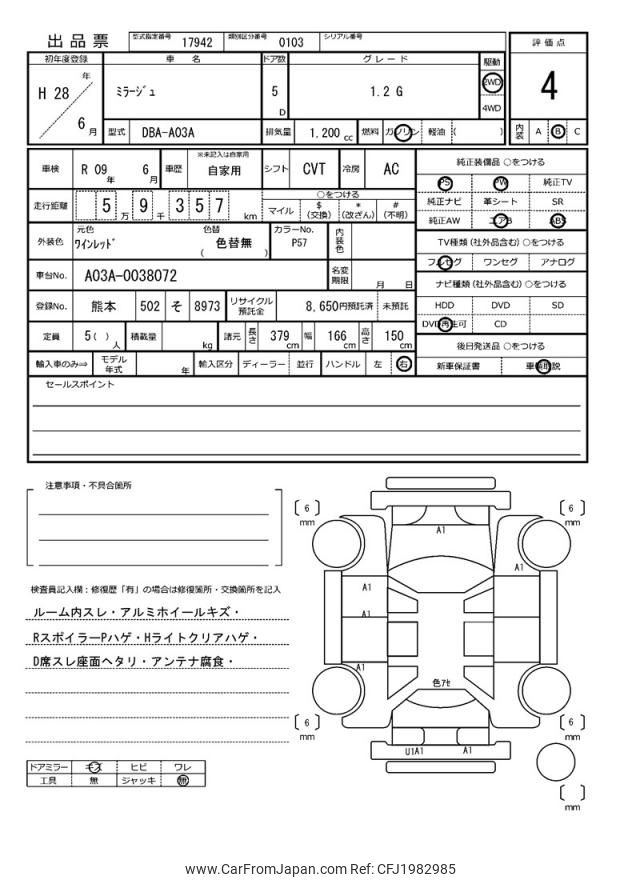 出品票 型式指定番号 17942 類別区分番号 0103 シリアル番号
評価点
4
内装 A B C
初年度登録 車名 ドア数 グレード 駆動
H 28 年 6 月 ミラージュ 5 D 1.2 G 2WD 4WD
型式 DBA-A03A 排気量 1,200 cc 燃料 ガソリン 軽油 ( )
車検 R 09 年 6 月 車歴 ※未記入は自家用 自家用 シフト CVT 冷房 AC
走行距離 5 万 9 千 3 5 7 km ○をつける
マイル $ (交換) * (改ざん) # (不明)
外装色 元色 ワインレッド 色替 ( 色替無 ) カラーNo. P57 内装色
車台No. A03A-0038072 名変期限 月 日
登録No. 熊本 502 そ 8973 リサイクル預託金 8,650円預託済 未預託
定員 5( ) 人 積載量 kg 諸元 長さ 379 cm 幅 166 cm 高さ 150 cm
輸入車のみ⇒ モデル年式 年 輸入区分 ディーラー 並行 ハンドル 左 右
純正装備品 ○をつける
PS PW 純正TV
純正ナビ 革シート SR
純正AW エアB ABS
TV種類(社外品含む) ○をつける
フルセグ ワンセグ アナログ
ナビ種類(社外品含む) ○をつける
HDD DVD SD
DVD再生可 CD
後日発送品 ○をつける
新車保証書 車輌取説
セールスポイント
注意事項・不具合箇所
検査員記入欄:修復歴「有」の場合は修復箇所・交換箇所を記入
ルーム内スレ・アルミホイールキズ・
RスポイラーPハゲ・Hライトクリアハゲ・
D席スレ座面ヘタリ・アンテナ腐食・
ドアミラー キズ ヒビ ワレ
工具 無 ジャッキ 無
[ 6 ] mm
[ 6 ] mm
A1
A1
A1
A1
A1
色アセ
[ 6 ] mm
[ 6 ] mm
U1A1 A1
[ ] mm
www.CarFromJapan.com Ref: CFJ1982985